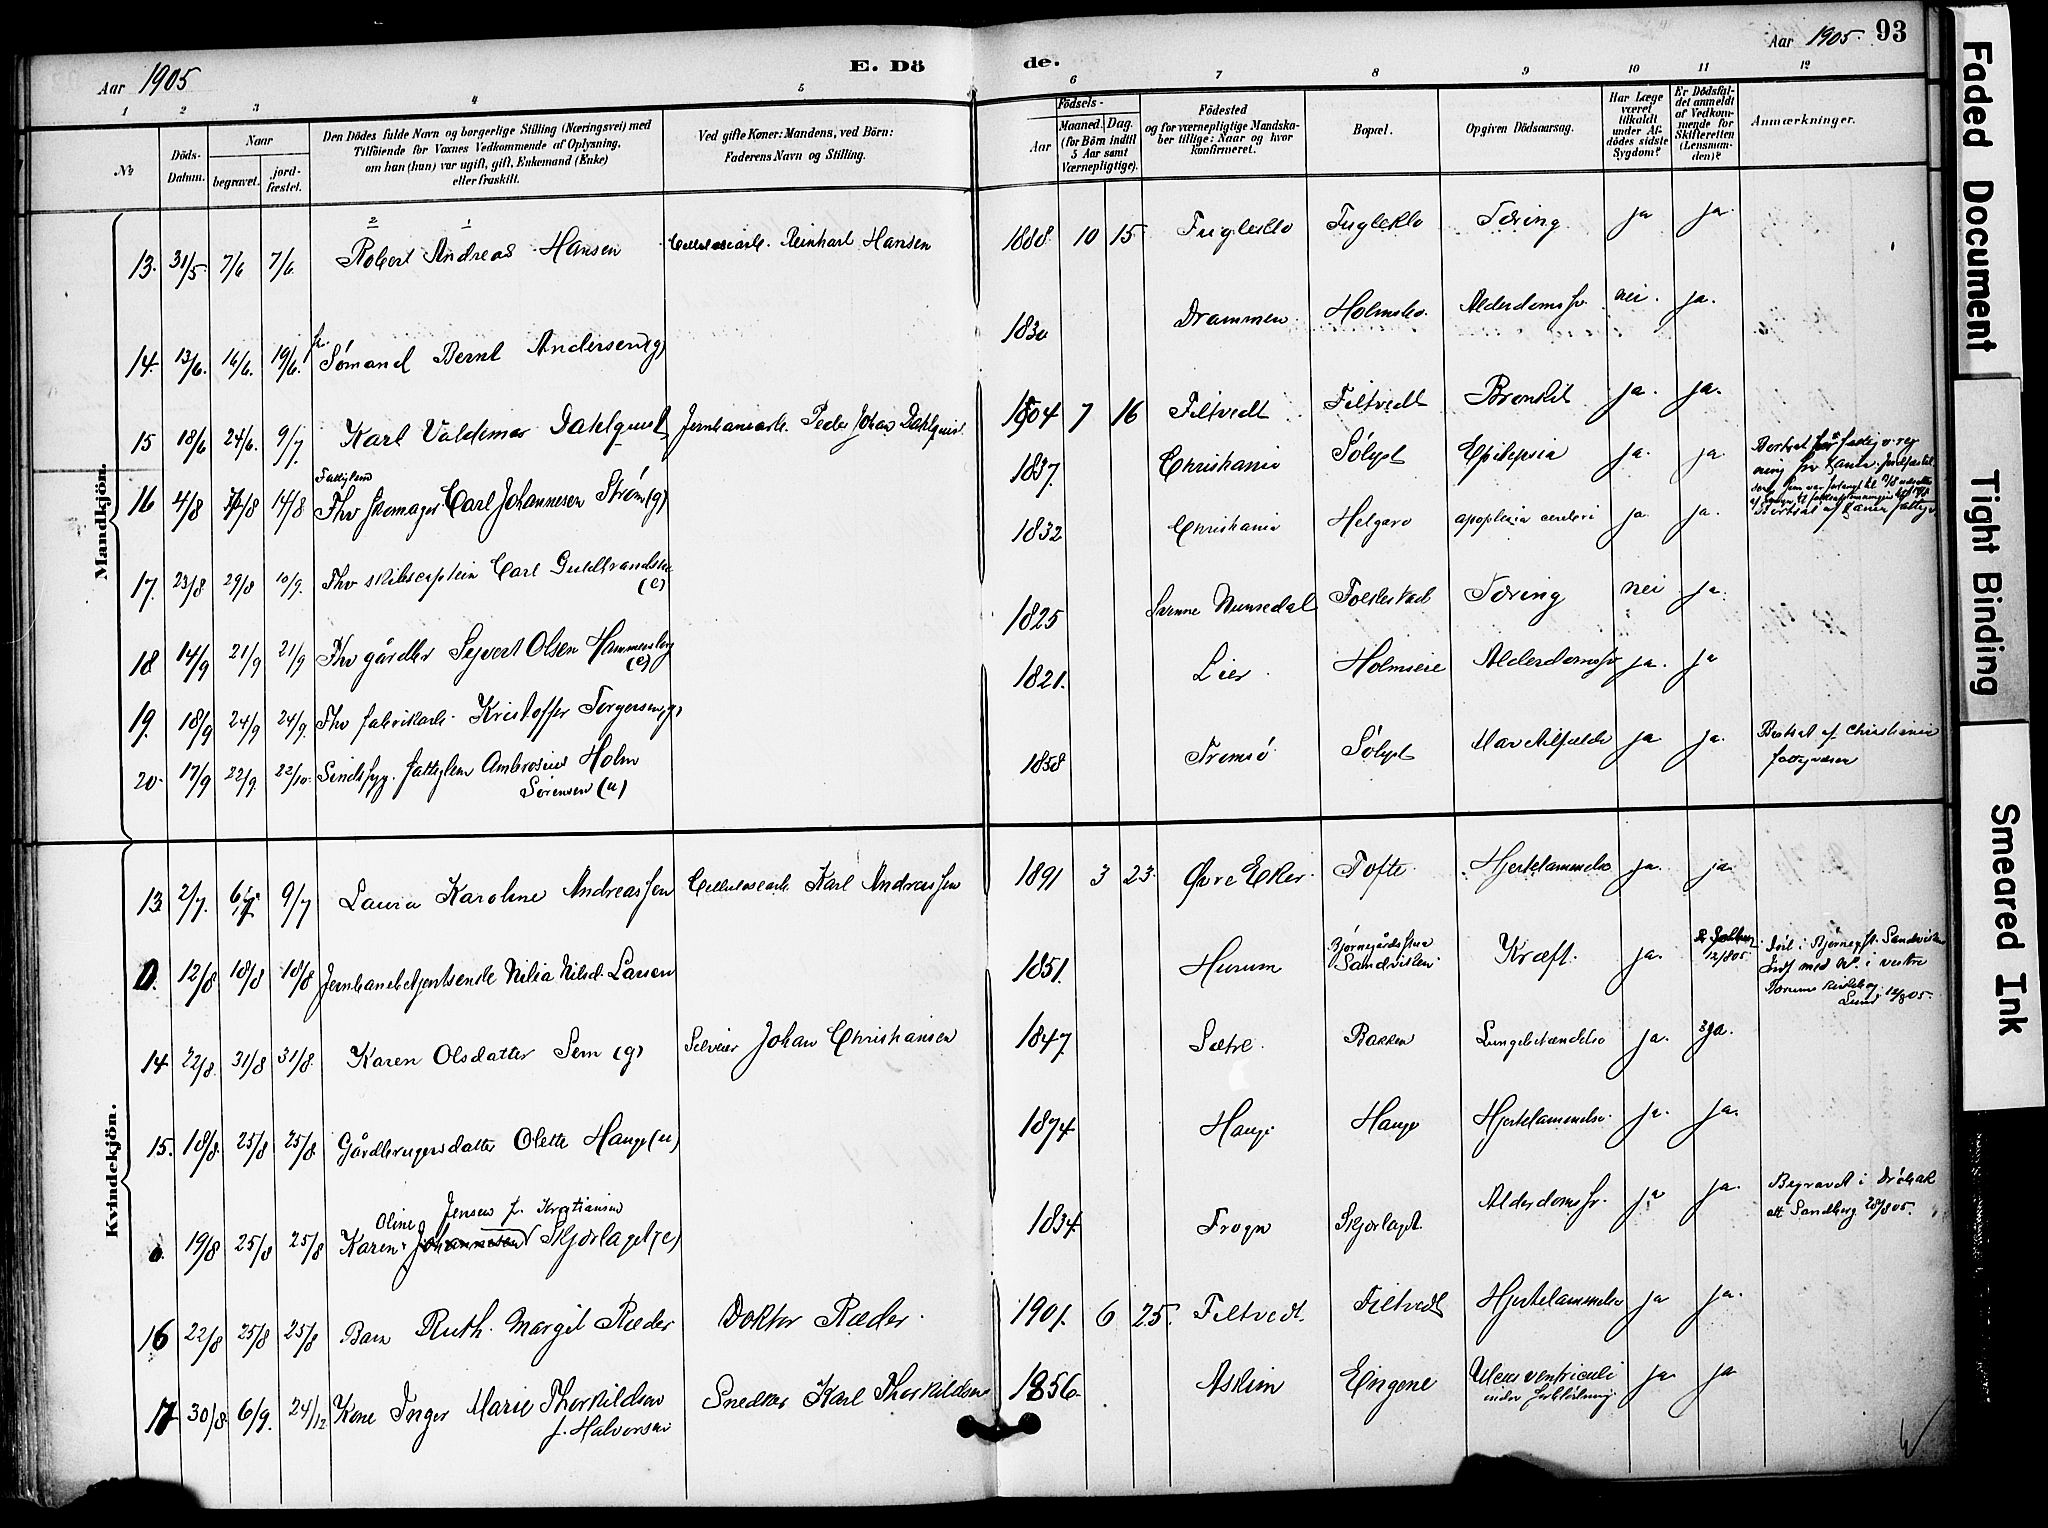 Aar 1905
E. Dö
de.
Aar 1905. 93
1 2 3 4 5 6 7 8 9 10 11 12
No
Döds-Datum.
Naar
begravet.
jord-fæstet.
Den Dödes fulde Navn og borgerlige Stilling (Næringsvei) med
Tilföiende for Voxnes Vedkommende af Oplysning,
om han (hun) var ugift, gift, Enkemand (Enke)
eller fraskilt.
Ved gifte Koner: Mandens, ved Börn:
Faderens Navn og Stilling.
Födsels-
Aar
Maaned. Dag.
(for Börn indtil
5 Aar samt
Værnepligtige).
Födested
og for værnepligtige Mandska-
ber tillige: Naar og hvor
konfirmeret.
Bopæl.
Opgiven Dödsaarsag.
Har Læge
været
tilkaldt
under Af-
dödes sidste
Sygdom?
Er Dödsfal-
det anmeldt
af Vedkom-
mende for
Skifteretten
(Lensman-
den)?
Anmærkninger.
Mandkjön.
2 1
13. 31/5 7/6 7/6. Robert Andreas Hansen Cellulosearb. Reinhart Hansen 1888. 10 15. Fugleklo Fugleklo Tæring ja ja.
14. 13/6. 16/6. 19/6. fr. Sømand Bernt Andersen (g) 1830 Drammen. Holmsbo. Alderdomssv. nei. ja.
15 18/6 24/6. 9/7. Karl Valdemar Dahlquist Jernbanearb. Peder Johan Dahlquist. 1904 7 16 Filtvedt Filtvedt Bronkit ja. ja.
Fattiglem
16 4/8 /8 14/8 Fhv skomager Carl Johannesen Strøm (g) 1837. Christiania Sølyst Epilepsia ja. ja
17. 23/8 29/8 10/9. Fhv skibscaptein Carl Guldbrandsen (e) 1832 Christiania Helgerø apoplexia cerebri ja. ja.
18 14/9 21/9 21/9 Fhv gårdbr Syvert Olsen Hammersborg (e) 1825 Numedal Tæring nei ja.
19. 18/9 24/9 24/9. Fhv fabrikarb. Kristoffer Torgersen (g) 1821. Lier. Alderdomssv ja. ja
20. 17/9 22/9. 22/10. Sindssyg. fattiglem Ambrosius Holm
Sørensen (u) 1858 Tromsø Sølyst ja ja. Bestræt af Christiania
fattigvæsen
Kvindekjön.
13 2/7. 9/7 Laura Karoline Andreassen Cellulosearb. Karl Andreassen 1891 3 23. Øvre Eker. Tofte. Hjertelammelse ja. ja.
0. 12/8 18/8 18/8 Jernbanebetjentsenke Nilia Nilsd. Larsen 1851. Hurum Bjørnegårdsstua
Sandviken. Kræft. ja. 12/8 05. Død i Bjørnegst. Sandviken
Indf med No. i vestre
Bærums kirkebog.
12/8 05.
14 22/8. 31/8 31/8. Karen Olsdatter Sem (g) Selveier Johan Christiansen 1847. Sætre. Bakken Lungebetændelse ja. ja.
15. 18/8. 25/8 25/8. Gårdbrugersdatter Olette Hauge (u) 1874. Hauge Hauge Hjertelammelse. ja. ja.
Oline Jensen f. Kristiansen
0. 19/8 25/8 25/8 Karen Johannesen Skjørlaget (e) 1834. Frogn Skjørlagt. Alderdomssv. ja ja. Begravet i Drøbak
att Sandberg 20/8 05.
16 22/8 25/8 25/8 Barn Ruth Margit Ræder Doktor Ræder. 1901. 6 25. Filtvedt. Filtvedt Hjertelammelse ja ja.
17 30/8. 6/9. 24/12 Kone Inger Marie Thorkildsen
f. Halvorsen Snedker Karl Thorkildsen 1856. Askim Engene Ulcus ventriculi
under forblødning ja. ja
Faded Document
Tight Binding
Smeared Ink